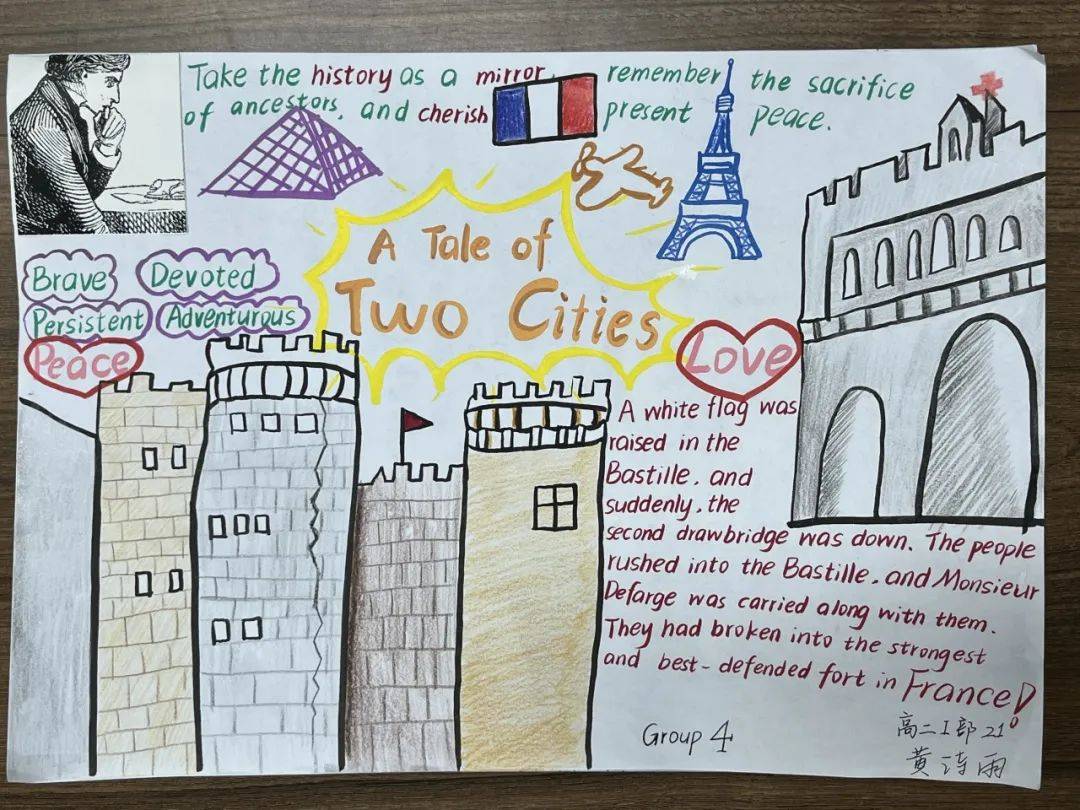 Take the history as a mirror, remember the sacrifice
of ancestors, and cherish present peace.
A Tale of
Two Cities
Brave Devoted
Persistent Adventurous
Peace
Love
A white flag was
raised in the
Bastille, and
suddenly, the
second drawbridge was down. The people
rushed into the Bastille, and Monsieur
Defarge was carried along with them.
They had broken into the strongest
and best-defended fort in France!
Group 4
高二I部21
黄诗雨